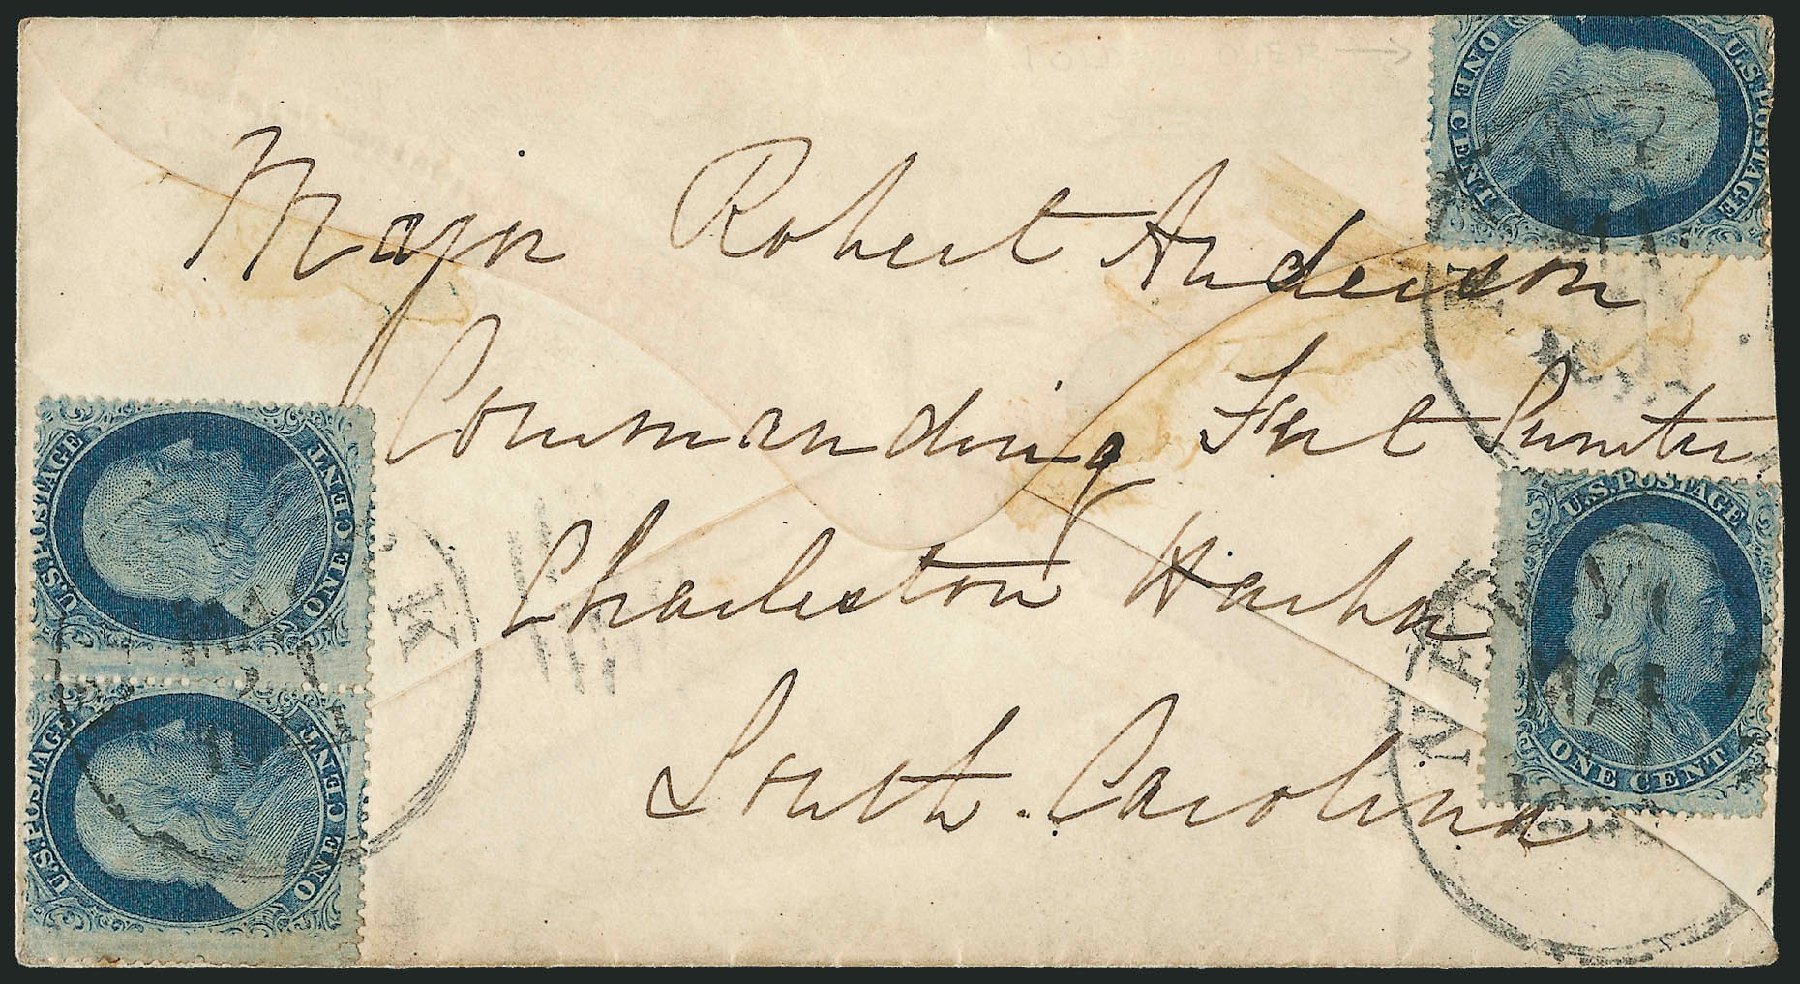 Major Robert Anderson
Commanding Fort Sumter
Charleston Harbor
South Carolina
U.S. POSTAGE
ONE CENT
U.S. POSTAGE
ONE CENT
U.S. POSTAGE
ONE CENT
U.S. POSTAGE
ONE CENT
NEW
MAR